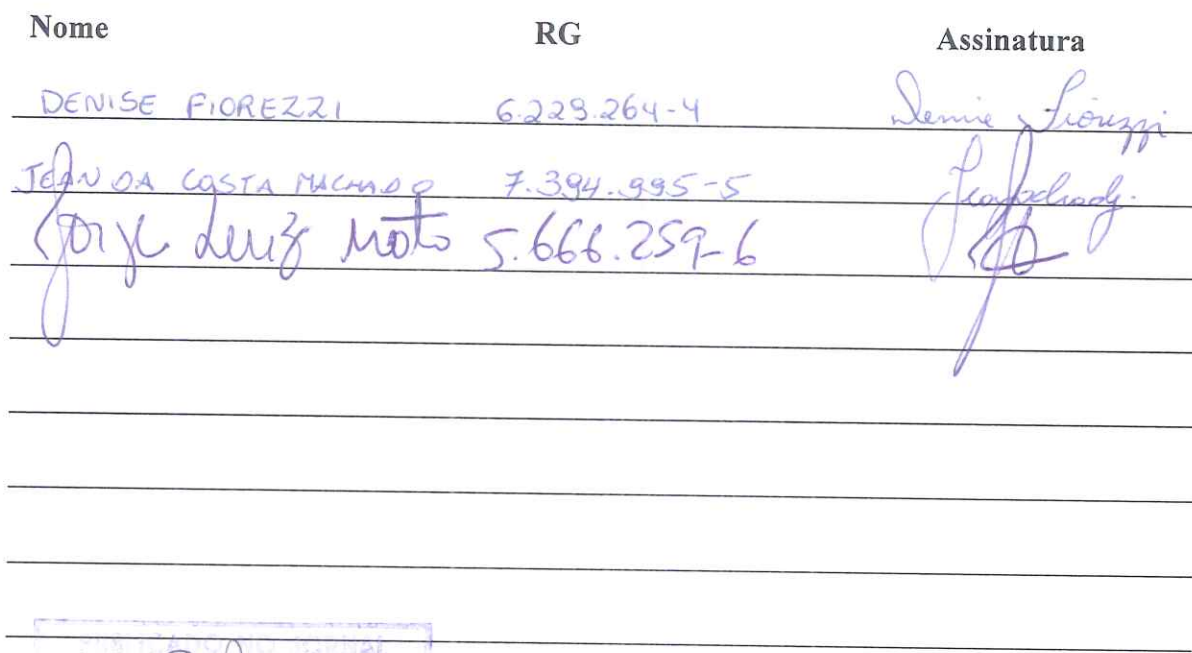 Nome RG Assinatura
DENISE FIOREZZI 6.229.264-4 Denise Fiorezzi
JEAN DA COSTA MACHADO 7.394.995-5
Jorge Luiz Moto 5.666.259-6